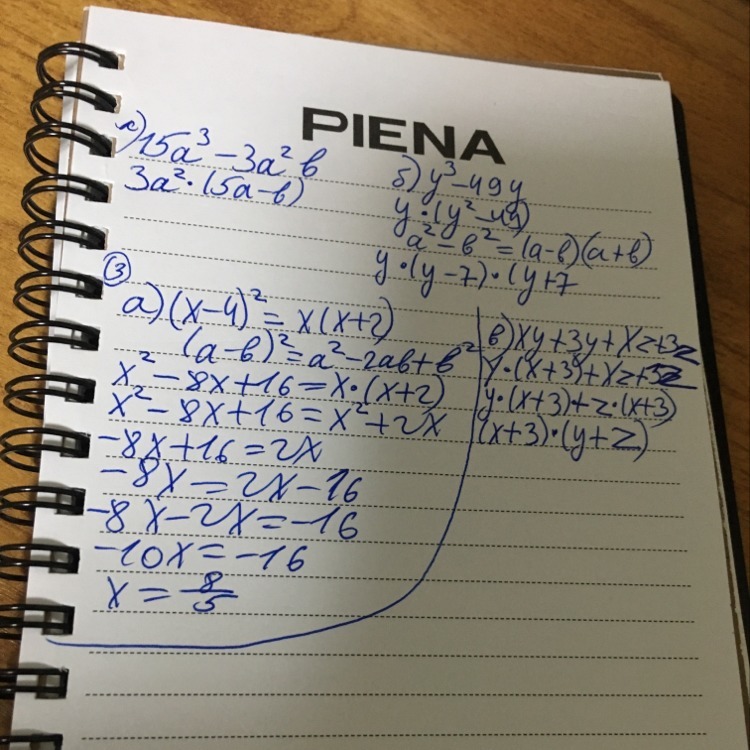 PIENA
а) 15a³ – 3a² b
3a² · (5a – b)
б) y³ – 49y
y · (y² – 49)
a² – b² = (a – b)(a + b)
y · (y – 7) · (y + 7
③
a) (x – 4)² = x(x + 2)
(a – b)² = a² – 2ab + b²
x² – 8x + 16 = x · (x + 2)
x² – 8x + 16 = x² + 2x
–8x + 16 = 2x
–8x = 2x – 16
–8x – 2x = –16
–10x = –16
x = 8/5
в) xy + 3y + xz + 3z
y · (x + 3) + xz + 3z
y · (x + 3) + z · (x + 3)
(x + 3) · (y + z)